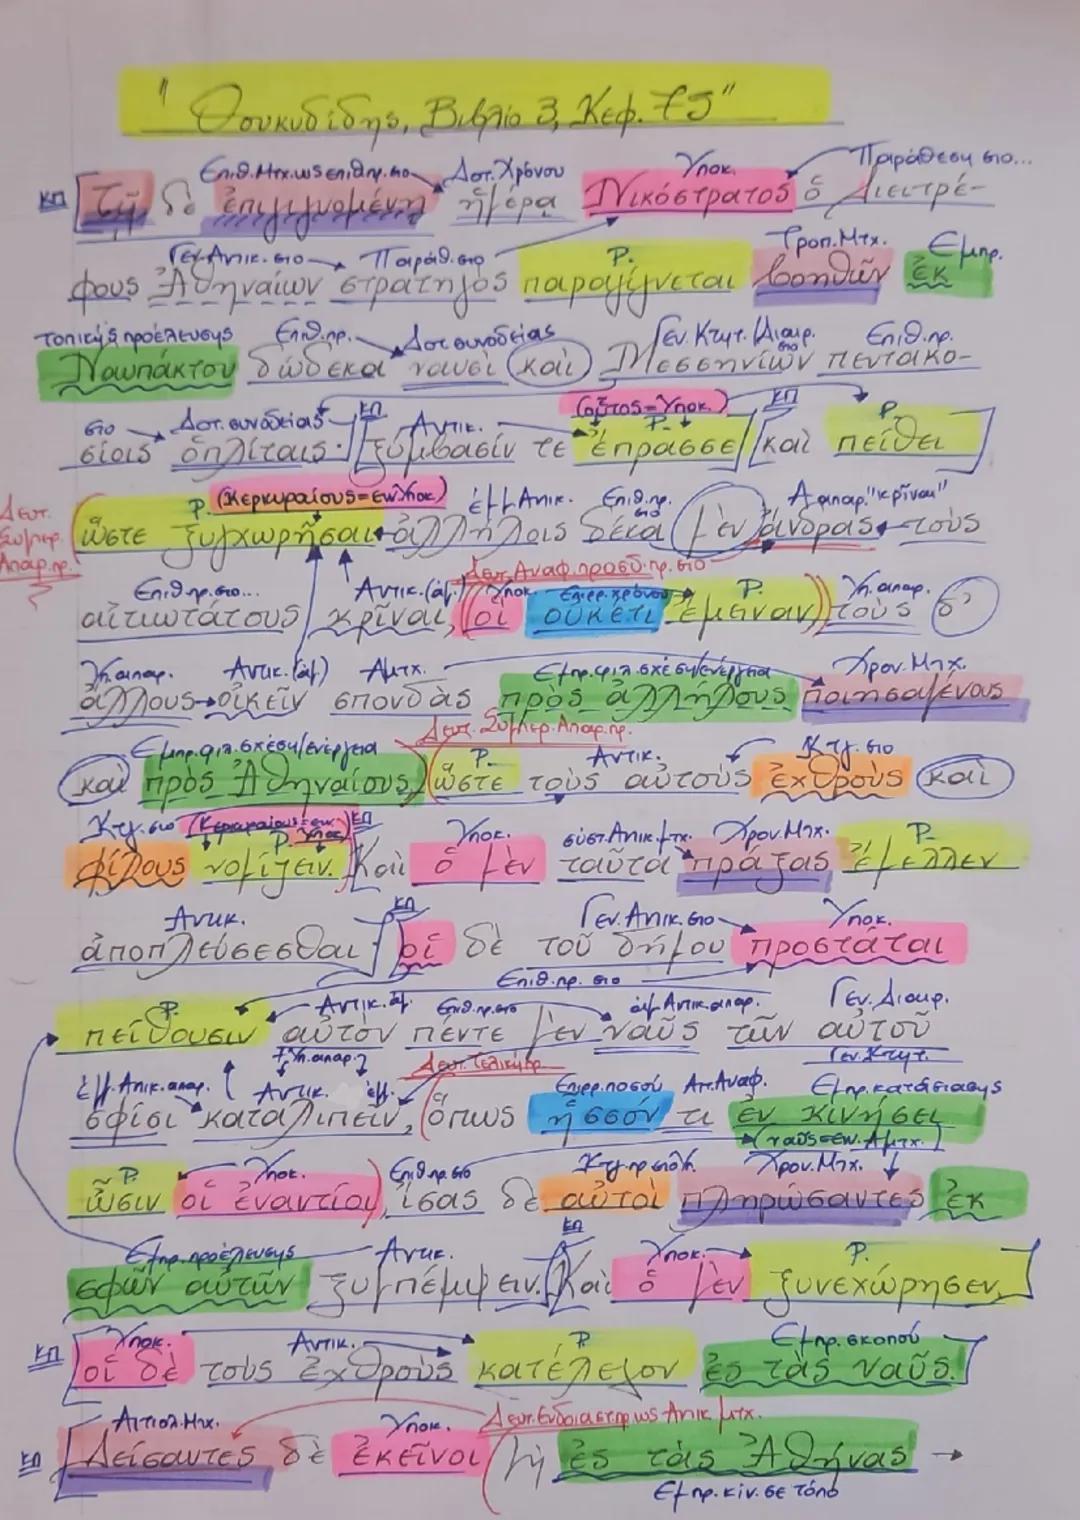 "Θουκυδίδης, Βιβλίο 3, Κεφ. 75"
Επιθ.Μτχ.ως επιθ.πρ.στο Δοτ.Χρόνου Υποκ. Παράθεση στο...
ΚΠ [Τῇ δὲ ἐπιγιγνομένῃ ἡμέρᾳ Νικόστρατος ὁ Διειτρέ-
Γεν.Αντικ.στο Παράθ.στο Ρ. Τροπ.Μτχ. Εμπρ.
φους Ἀθηναίων στρατηγὸς παραγίγνεται βοηθῶν ἐκ
τοπικής προέλευσης Επιθ.πρ. Δοτ.συνοδείας Γεν.Κτητ./Διαιρ. στο Επιθ.πρ.
Ναυπάκτου δώδεκα ναυσὶ καὶ Μεσσηνίων πεντακο-
στο Δοτ.συνοδείας ΚΠ Αντικ. (οὗτος=Υποκ.) Ρ. ΚΠ Ρ.
σίοις ὁπλίταις· [ξύμβασίν τε ἔπρασσε] [καὶ πείθει]
Δευτ. Συμπερ. Απαρ.πρ. Ρ. (Κερκυραίους=εν.Υποκ.) έμμ.Αντικ. Επιθ.πρ. στο Α απαρ."κρῖναι"
(ὥστε ξυγχωρῆσαι ἀλλήλοις δέκα μὲν ἄνδρας τοὺς
Επιθ.πρ.στο... Αντικ.(άμ.) Δευτ.Αναφ.προσδ.πρ.στο Υποκ. Επιρρ.χρόνου Ρ. Υπ.απαρ.
αἰτιωτάτους κρῖναι, (οἳ οὐκέτι ἔμειναν) τοὺς δ'
Υπ.απαρ. Αντικ.(άμ) Αμτχ. Εμπρ.φιλ.σχέση/ενέργεια Χρον.Μτχ.
ἄλλους οἰκεῖν σπονδὰς πρὸς ἀλλήλους ποιησαμένους
Εμπρ.φιλ.σχέση/ενέργεια Δευτ.Συμπερ.Απαρ.πρ. Ρ. Αντικ. Κτγ.στο
καὶ πρὸς Ἀθηναίους, (ὥστε τοὺς αὐτοὺς ἐχθροὺς καὶ
Κτγ.στο (Κερκυραίους=εν. Υποκ.) Ρ. ΚΠ Υποκ. σύστ.Αντικ.μτχ. Χρον.Μτχ. Ρ.
φίλους νομίζειν. [Καὶ ὁ μὲν ταῦτα πράξας ἔμελλεν
Αντικ. ΚΠ Γεν.Αντικ.στο Υποκ.
ἀποπλεύσεσθαι] [οἱ δὲ τοῦ δήμου προστάται
Επιθ.πρ.στο
Ρ. Αντικ.άμ. Επιθ.πρ.στο άμ.Αντικ.απαρ. Γεν.Διαιρ.
πείθουσιν αὐτὸν πέντε μὲν ναῦς τῶν αὐτοῦ
+Υπ.απαρ. Δευτ.Τελική πρ. Γεν.Κτητ.
έμμ.Αντικ.απαρ. Αντικ. έμμ. Επιρρ.ποσού Αιτ.Αναφ. Εμπρ.κατάστασης
σφίσι καταλιπεῖν, (ὅπως ἧσσόν τι ἐν κινήσει
(ναῦς=εν.Αμτχ.)
Ρ. Υποκ. Επιθ.πρ.στο Κτγ.πρ στο Υ. Χρον.Μτχ.
ὦσιν οἱ ἐναντίοι), ἴσας δὲ αὐτοὶ πληρώσαντες ἐκ
Εμπρ.προέλευσης Αντικ. ΚΠ Υποκ. Ρ.
σφῶν αὐτῶν ξυμπέμψειν. [Καὶ ὁ μὲν ξυνεχώρησεν,]
ΚΠ Υποκ. Αντικ. Ρ. Εμπρ.σκοπού
[οἱ δὲ τοὺς ἐχθροὺς κατέλεγον ἐς τὰς ναῦς.]
Αιτιολ.Μτχ. Υποκ. Δευτ.Ενδοιαστ.πρ ως Αντικ μτχ.
ΚΠ [Δείσαντες δὲ ἐκεῖνοι (μὴ ἐς τὰς Ἀθήνας →
Εμπρ.κίν.σε τόπο